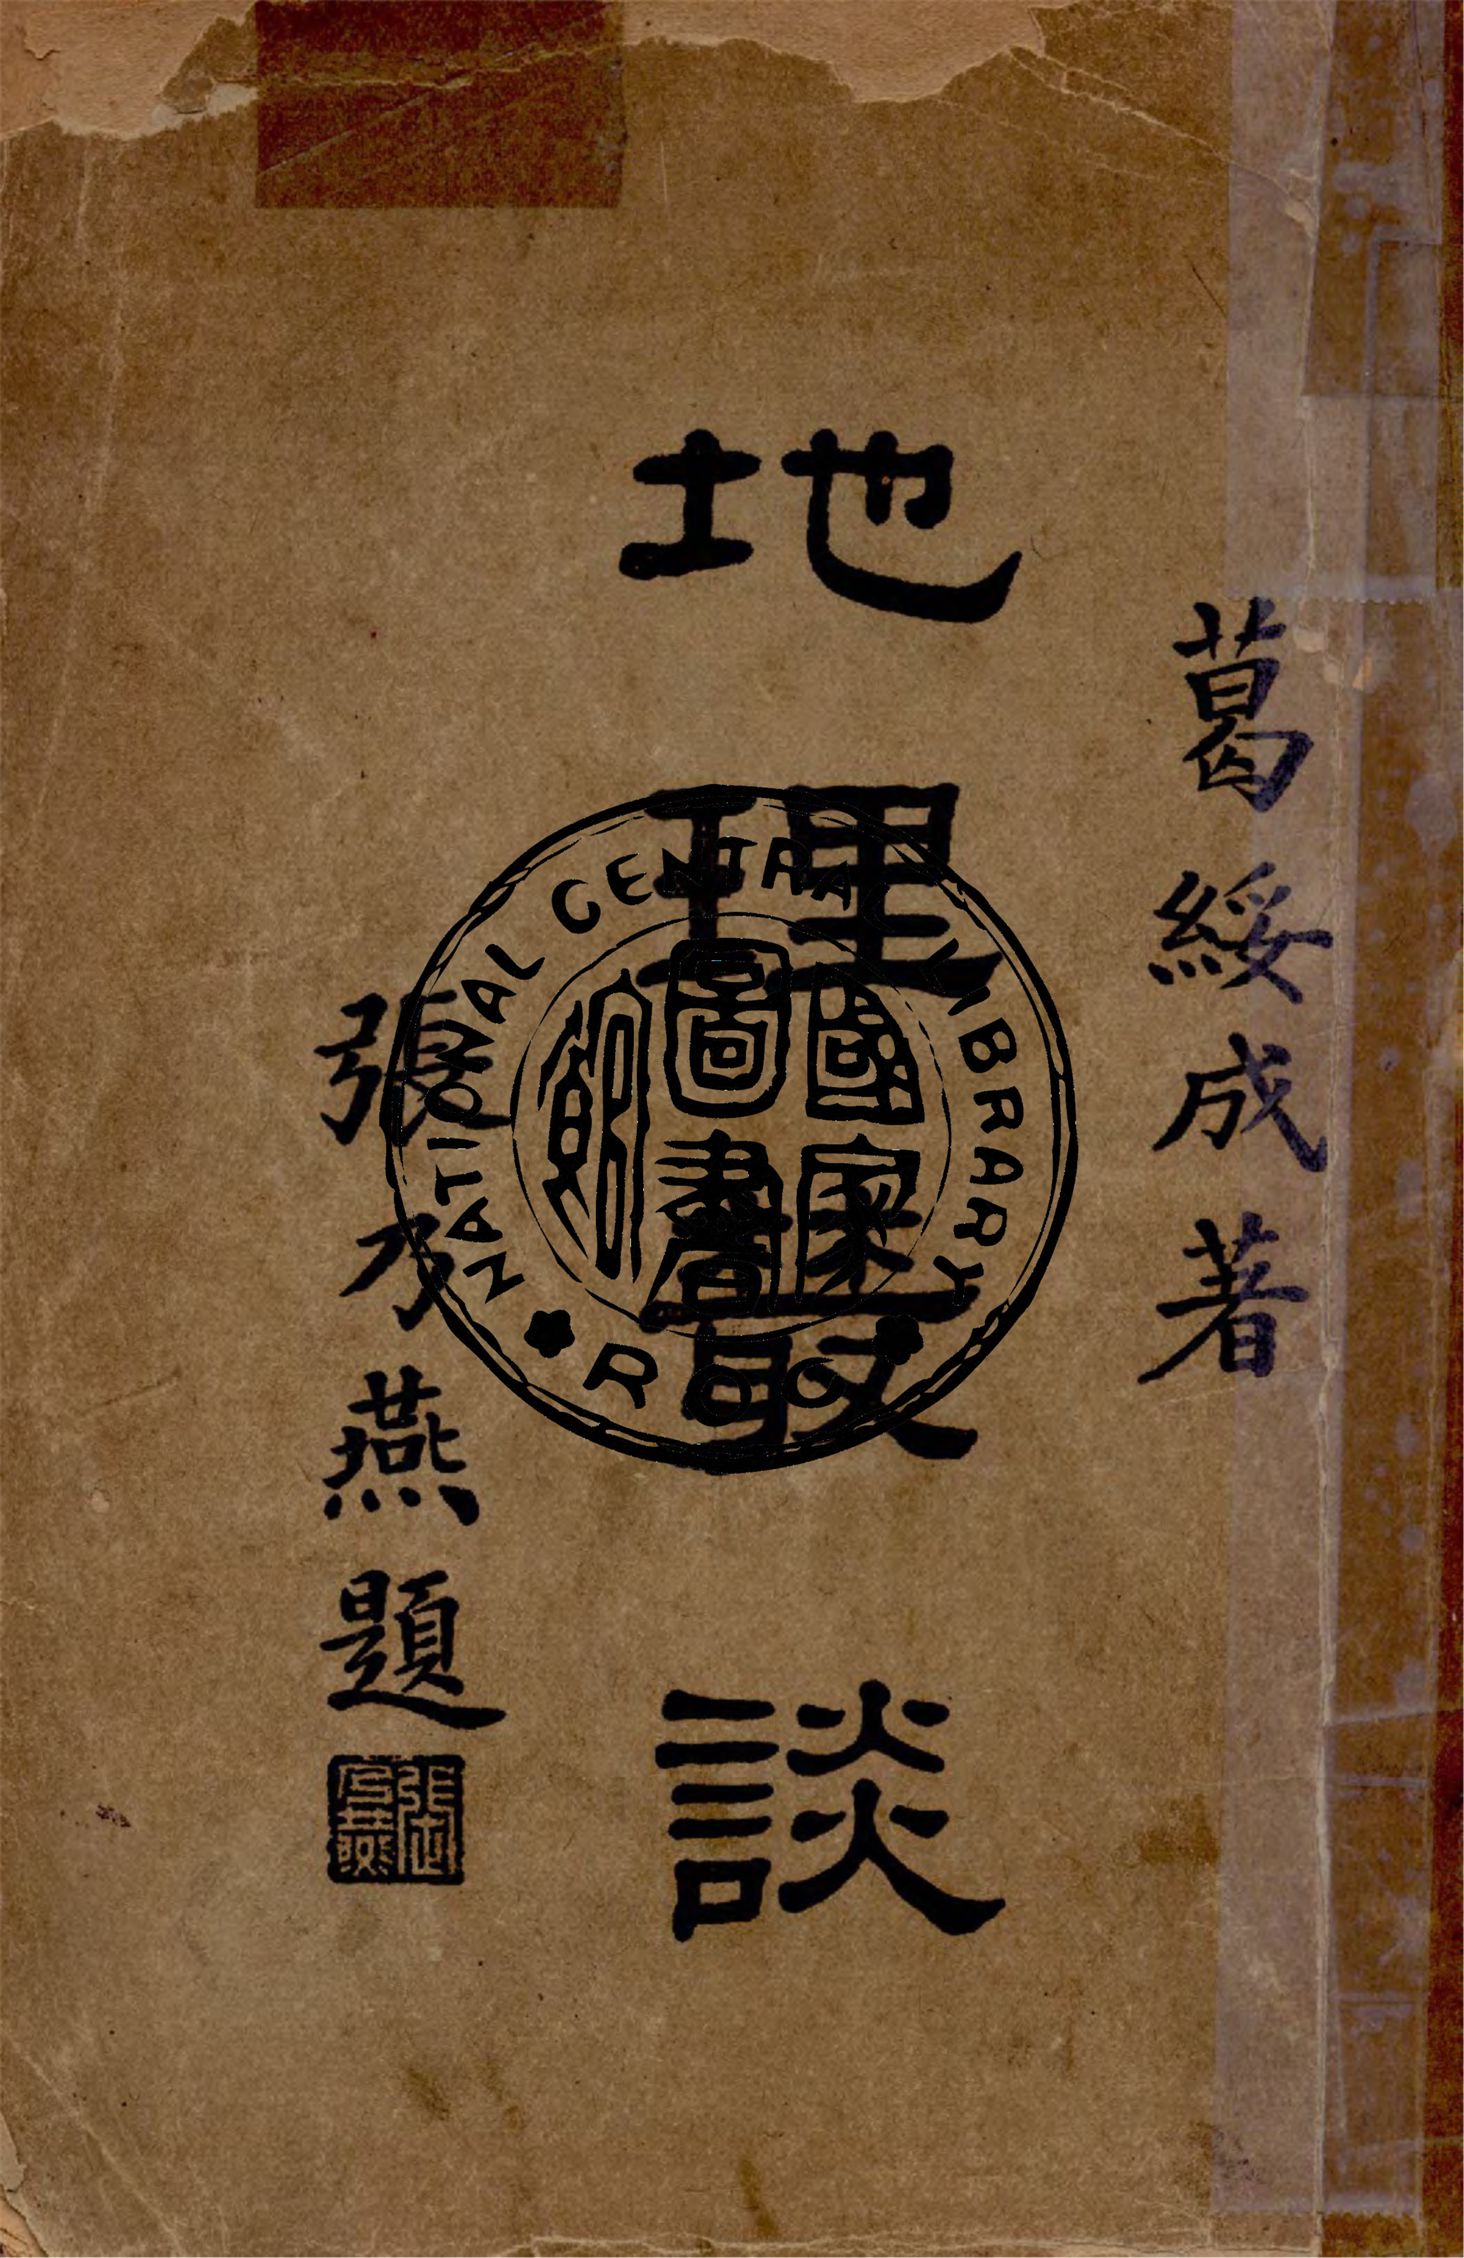 葛綏成著
地理叢談
張乃燕題
張乃燕
NATIONAL CENTRAL LIBRARY
ROC
國家
圖書
館